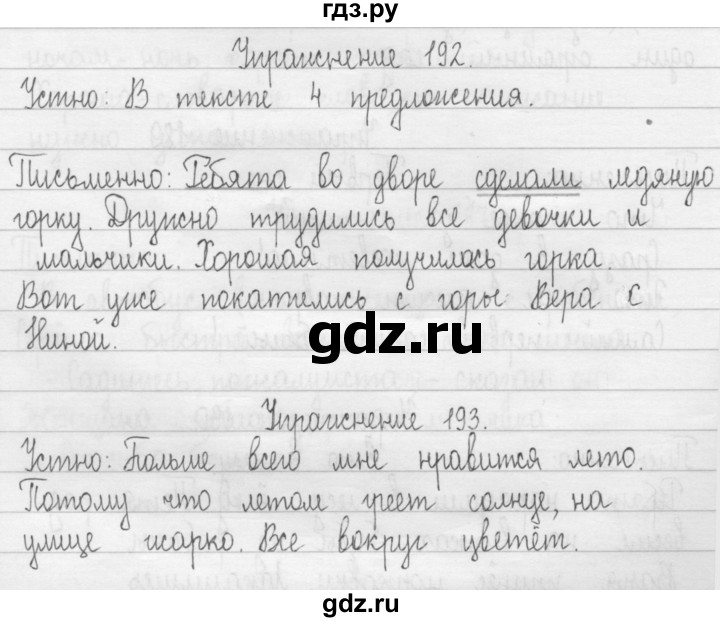 гдз.ру
Упражнение 192.
Устно: В тексте 4 предложения.
Письменно: Ребята во дворе сделали ледяную
горку. Дружно трудились все девочки и
мальчики. Хорошая получилась горка.
Вот уже покатились с горы Вера с
Ниной.
gdz.ru
Упражнение 193.
Устно: Больше всего мне нравится лето.
Потому что летом греет солнце, на
улице жарко. Все вокруг цветёт.
gdz.ru